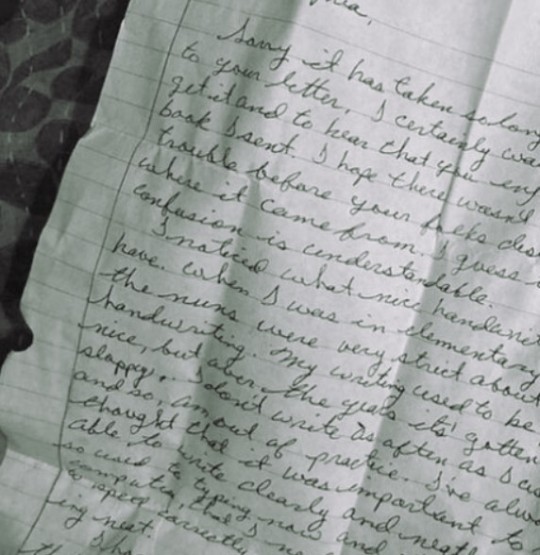 Sorry it has taken so long
to your letter, I certainly was
get it and to hear that you enj
book I sent. I hope there wasn't
trouble before your folks dis
where it came from. I guess
confusion is understandable.
I noticed what nice handwrit
have. When I was in elementary
the nuns were very strict about
handwriting. My writing used to be
nice, but over the years its' gotten
sloppy. I don't write as often as I us
and so, am out of practice. I've alwa
thought that it was important to
able to write clearly and neatly
so used to typing now and
computer, that I
to spell correctly
ing neat.
I ha
th